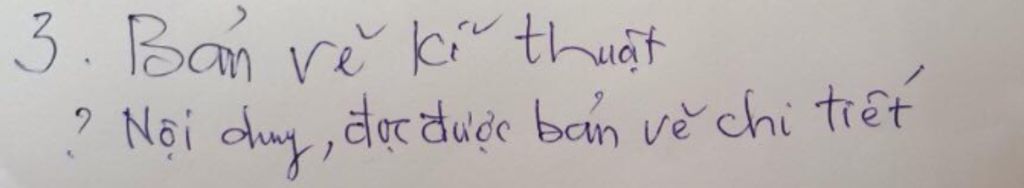 3. Bản vẽ kĩ thuật
? Nội dung, đọc được bản vẽ chi tiết